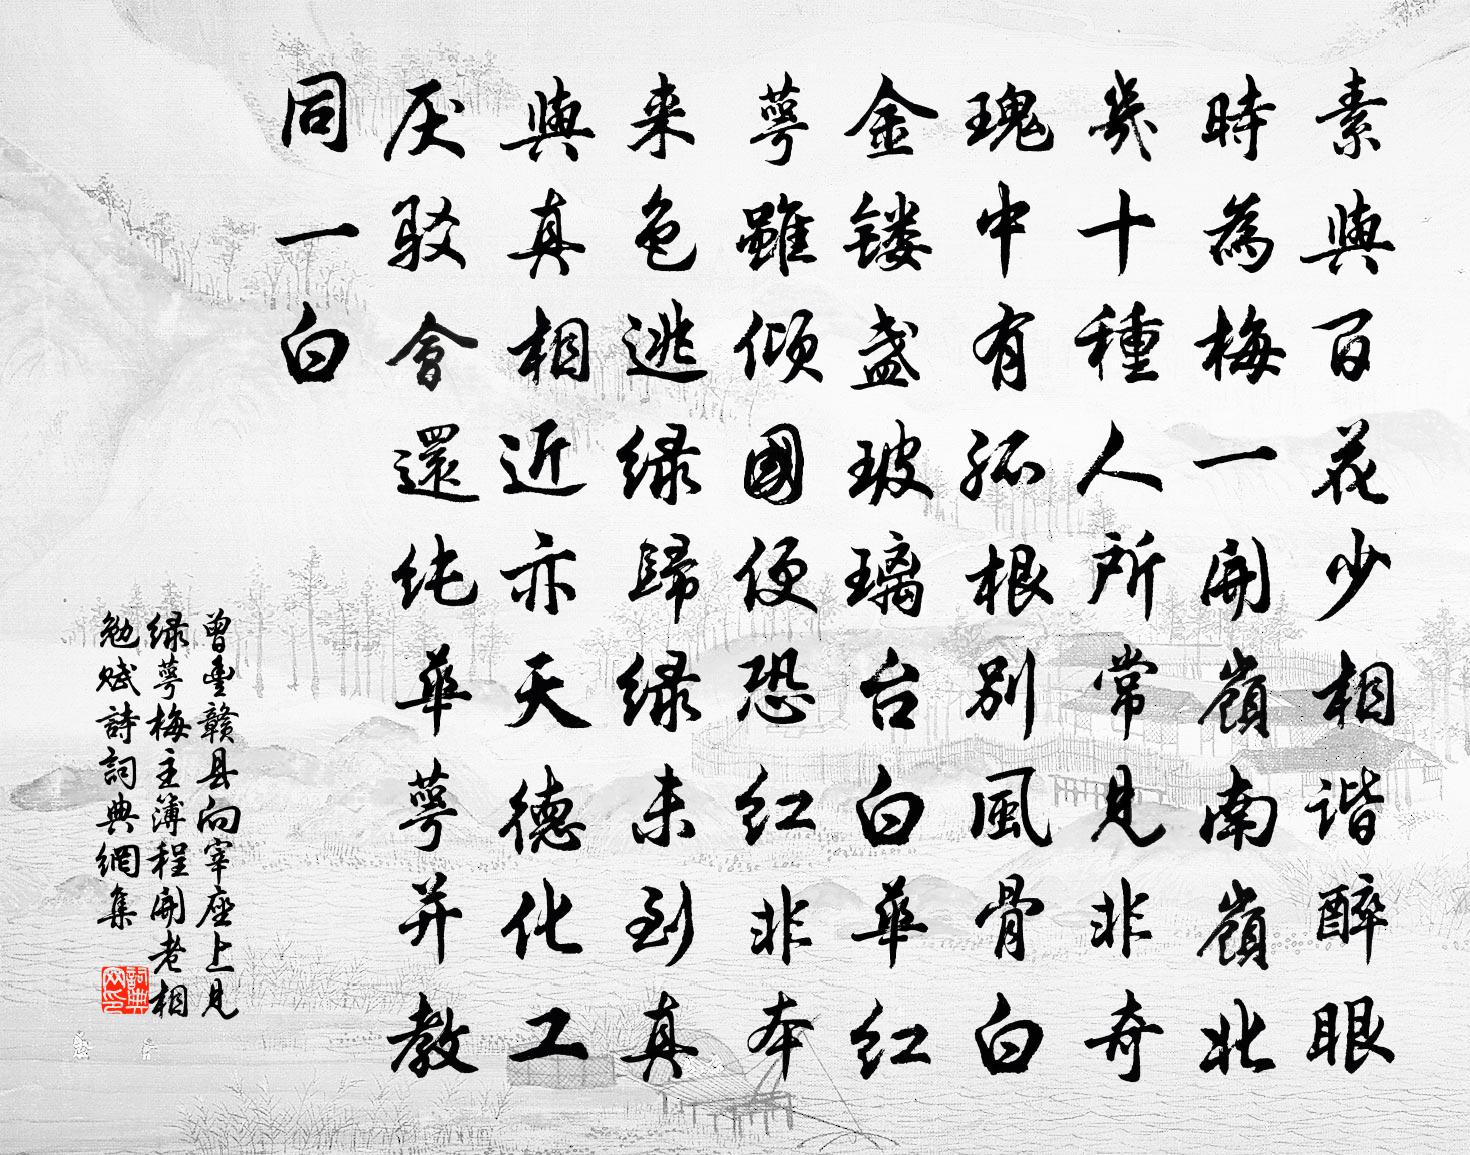 素與百花少相谐醉眼
時為梅一開嶺南嶺北
幾十種人所常見非奇
瑰中有孤根别風骨白
金镂盏玻璃台白華红
萼雖倾國便恐红非本
来色逃绿歸绿未到真
與真相近亦天德化工
厌驳會還纯華萼并教
同一白
曾豊贛县向宰座上見
绿萼梅主簿程開老相
勉赋詩詞典網集
詞典网印